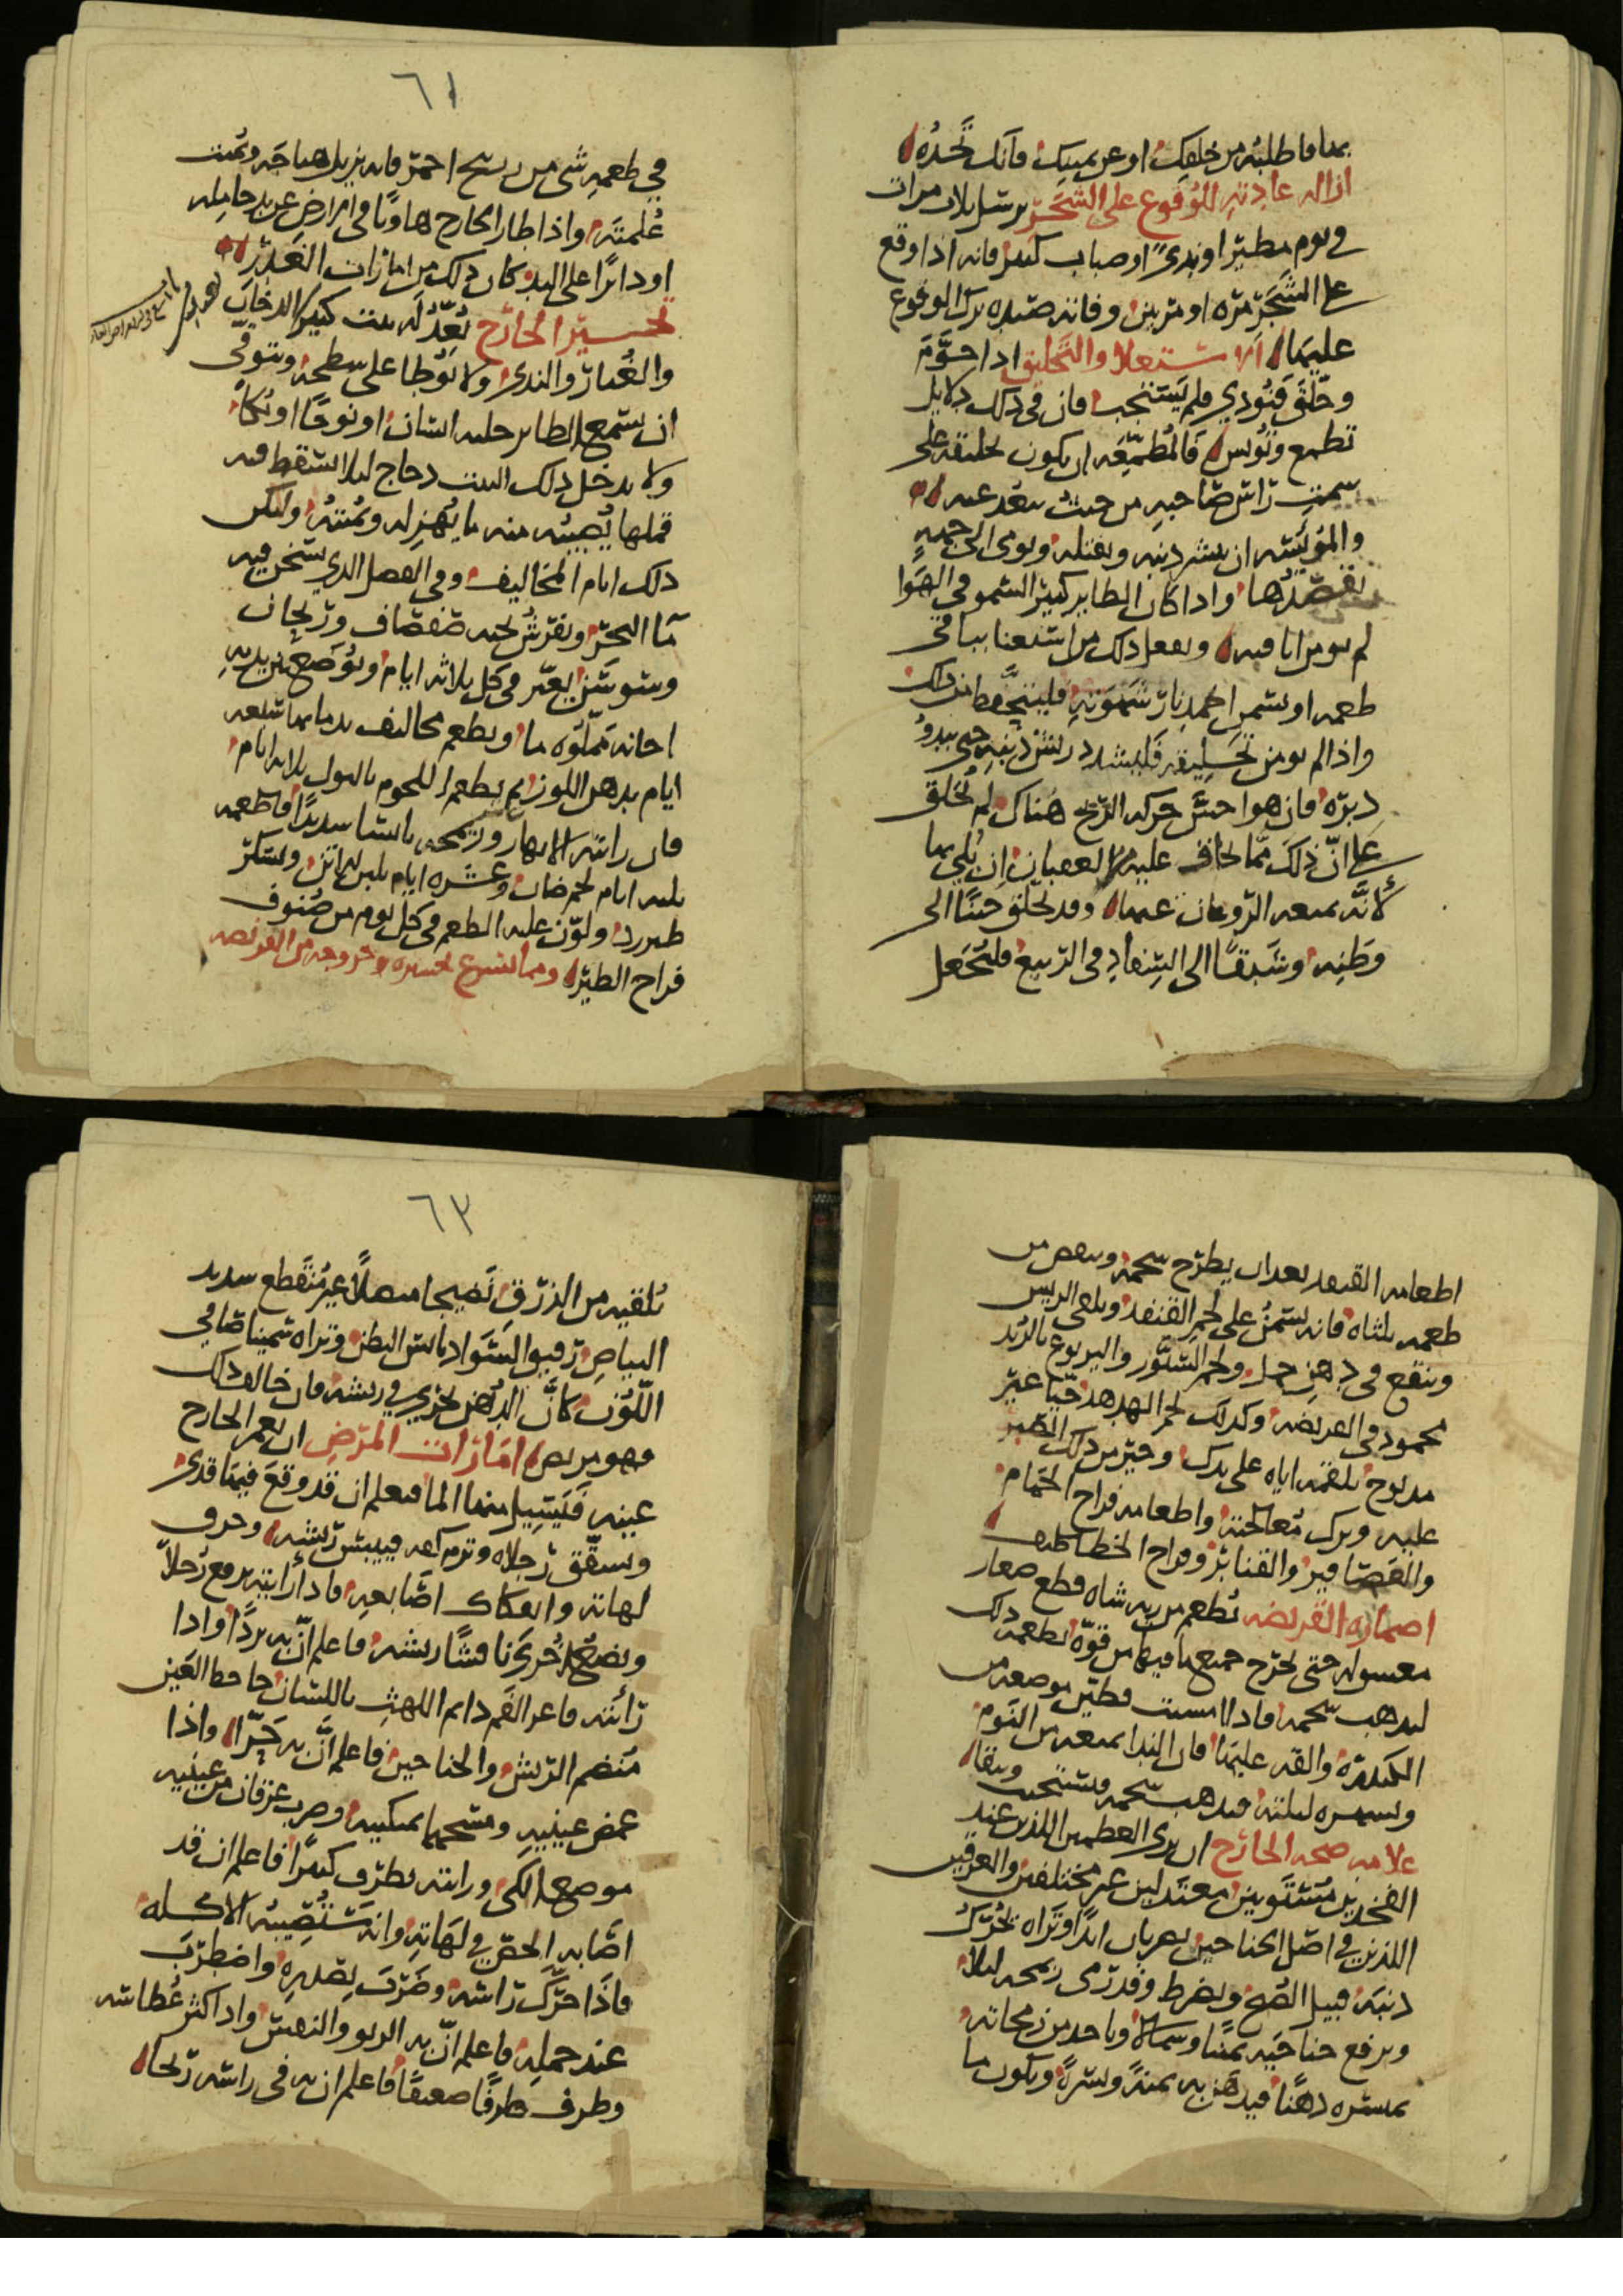 بها فاطلبه من خلفك او عن يمينك فانك تجده
ازاله عادته للوقوع على الشجر يرسل ثلاث مرات
في يوم مطير او ندي او ضباب كثير فانه اذا وقع
على الشجر مرة او مرتين وفاته صيده ترك الوقوع
عليها الاستعلا والتحليق اذا حوّم
وحلّق فنودي فلم يستجب فان في ذلك دلايل
تطمع وتويس فالمطمعه ان يكون تحليقه على
سمت راس صاحبه من حيث يبعد عنه
والمؤيسه ان ينشر ذنبه ويفتله ويومي الى جهه
يقصدها واذا كان الطاير كثير السمو في الهوا
لم يومن اباقه ويفعل ذلك من استغنا بباقي
طعمه او بشم احمد نار شهوته فليتحفظ من ذلك
واذا لم يومن تحليقه فليشدد ريش ذنبه حتى يبدو
دبره فان هوا حسّ حركه الريح هناك لم يحلق
على ان ذلك مما يخاف عليه من العقبان ان بلي بها
لانه يمنعه الروغان عنها وقد يحلق حنينا الى
وطنه وشبقا الى السفاد في الربيع فليجعل
٦١
في طعمه شي من زرنيخ احمر فانه يزيل هياجه ويميت
غلمته واذا طار الجارح هاويا في الارض عن يد حامله
او دايرا على اليد كان ذلك من امارات الغدر
تحسير الجارح يعدّ له بيت كنين من الدخان
والغبار والندى ولا يوطا على سطحه ويتوقى
ان يسمع الطاير جلبه انسان او نوحا او بكا
ولا يدخل ذلك البيت دجاج ليلا يسقط فيه
قملها يصيبه منه ما يهزله ويميته وليكن
ذلك ايام المخاليف وفي الفصل الذي يسخن فيه
ما البحر ويفرش تحته صفصاف وريحان
وسوسن يغير في كل ثلاثه ايام ويوضع بين يديه
اجانه مملوه ما ويطعم مخاليف بدماها سبعه
ايام بدهن اللوز ثم يطعم اللحوم بالبول ثلاثه ايام
فان رايته الابهار وزمجه يابسا شديدا فاطعمه
ثلثه ايام لحم ضان وعشره ايام بلبن الاتن وسكر
طبرزد ولوّن عليه الطعم في كل يوم من صنوف
فراخ الطير ومما يسرع تحسيره وخروجه من القرنصه
اطعامه القنفد بعد ان يطرح شحمه وينقص من
طعمه ثلثاه فانه يسمن على لحم القنفد ويلقي الريش
وينقع في دهن حل ولحم السنور واليربوع بالزبد
محمود في القرنصه وكذلك لحم الهدهد حيا غير
مدبوح تلقمه اياه على يدك وخير من ذلك الصبر
عليه وترك معالجته واطعامه فراخ الحمام
والعصافير والقنابر وفراخ الخطاطيف
اضماره القرنصه تطعم من ريه شاه قطع صغار
مغسوله حتى يخرج جميع ما فيها من قوه تطعمه ذلك
ليذهب شحمه فاذا امسيت فطين موضعه من
الكندره والقه عليها فان الندا يمنعه من النوم
ويسهره ليلته فيدهب شحمه ويستخف وينقا
علامه صحه الجارح ان يرى العظمين اللذين عند
الفخذين مستويين معتدلين غير مختلفين والعرقين
اللذين في اصل الجناحين يضربان ابدا وتراه يحرك
ذنبه قبيل الصبح ويضرط وقد رمى زمجه ليلا
ويرفع جناحيه يمينا وشمالا وياخد من زمجاته
بمنسره دهنا فيدهن به يمنة ويسرة ويكون ما
٦٣
يلقيه من الذرق نضيجا متصلا غير متقطع شديد
البياض رقيق السواد يابس البطن وتراه سمينا صافي
اللون كانّ الدهن يجري في ريشه فان خالف ذلك
فهو مريض امارات المرض ان يغمز الجارح
عينه فيسيل منها الما فيعلم ان قد وقع فيها قدى
وتشقق رجلاه وترم كفه فييبس ريشه وحرق
لهاته وانفكاك اصابعه فاذا رايته يرفع رجلا
ويضع اخرى نافشا ريشه فاعلم انّ به بردا واذا
رايته فاغر الفم دايم اللهث باللسان جاحظ العين
منضم الريش والجناحين فاعلم انّ به حرّا واذا
غمض عينيه ومسحهما بمنكبيه وضرب عرقان من عينيه
موضع الكي ورايته يطرف كثيرا فاعلم ان قد
اصابه الحصر في لهاته وانه ستصيبه الاكله
فاذا حرّك راسه وضرب بصدره واضطرب
عند حمله فاعلم انّ به الربو والنفس واذا كثر عطاسه
وطرف طرفا ضعيفا فاعلم ان به في راسه ريحا